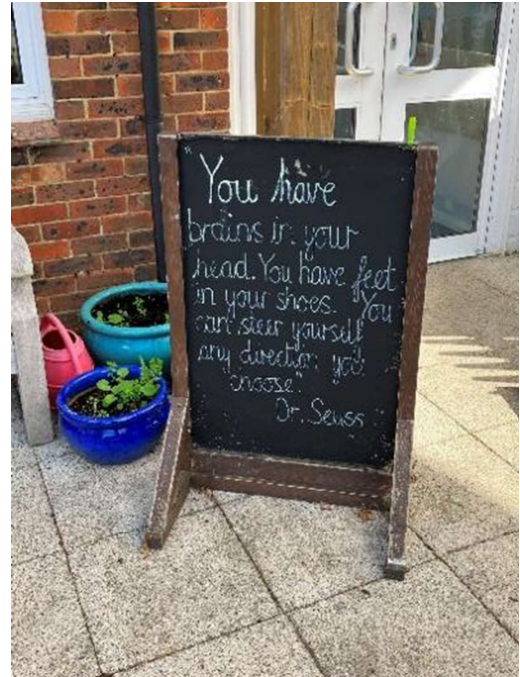 "You have
brains in your
head. You have feet
in your shoes. You
can steer yourself
any direction you
choose"
Dr. Seuss